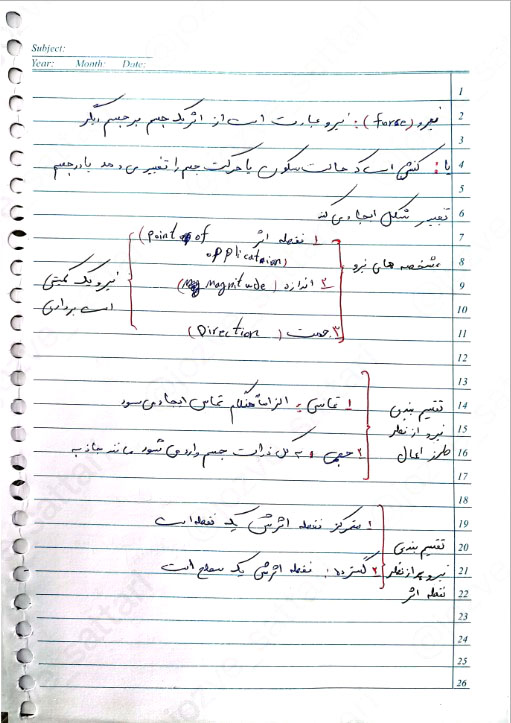 Subject:
Year: Month: Date:
نیرو (force): نیرو عبارت است از اثر یک جسم بر جسم دیگر
یا: کنشی است که حالت سکون یا حرکت جسم را تغییر می دهد یا در جسم
تغییر شکل ایجاد می کند
مشخصه های نیرو
۱ نقطه اثر (point of application)
۲ اندازه (magnitude)
۳. جهت (Direction)
نیرو یک کمیتی است برداری
تقسیم بندی نیرو از نظر طرز اعمال
۱ تماسی: الزاماً هنگام تماس ایجاد می شود
۲ حجمی: به کل ذرات جسم وارد می شود مانند جاذبه
تقسیم بندی نیرو از نظر نقطه اثر
۱ متمرکز نقطه اثرش یک نقطه است
۲ گسترده: نقطه اثرش یک سطح است
1
2
3
4
5
6
7
8
9
10
11
12
13
14
15
16
17
18
19
20
21
22
23
24
25
26